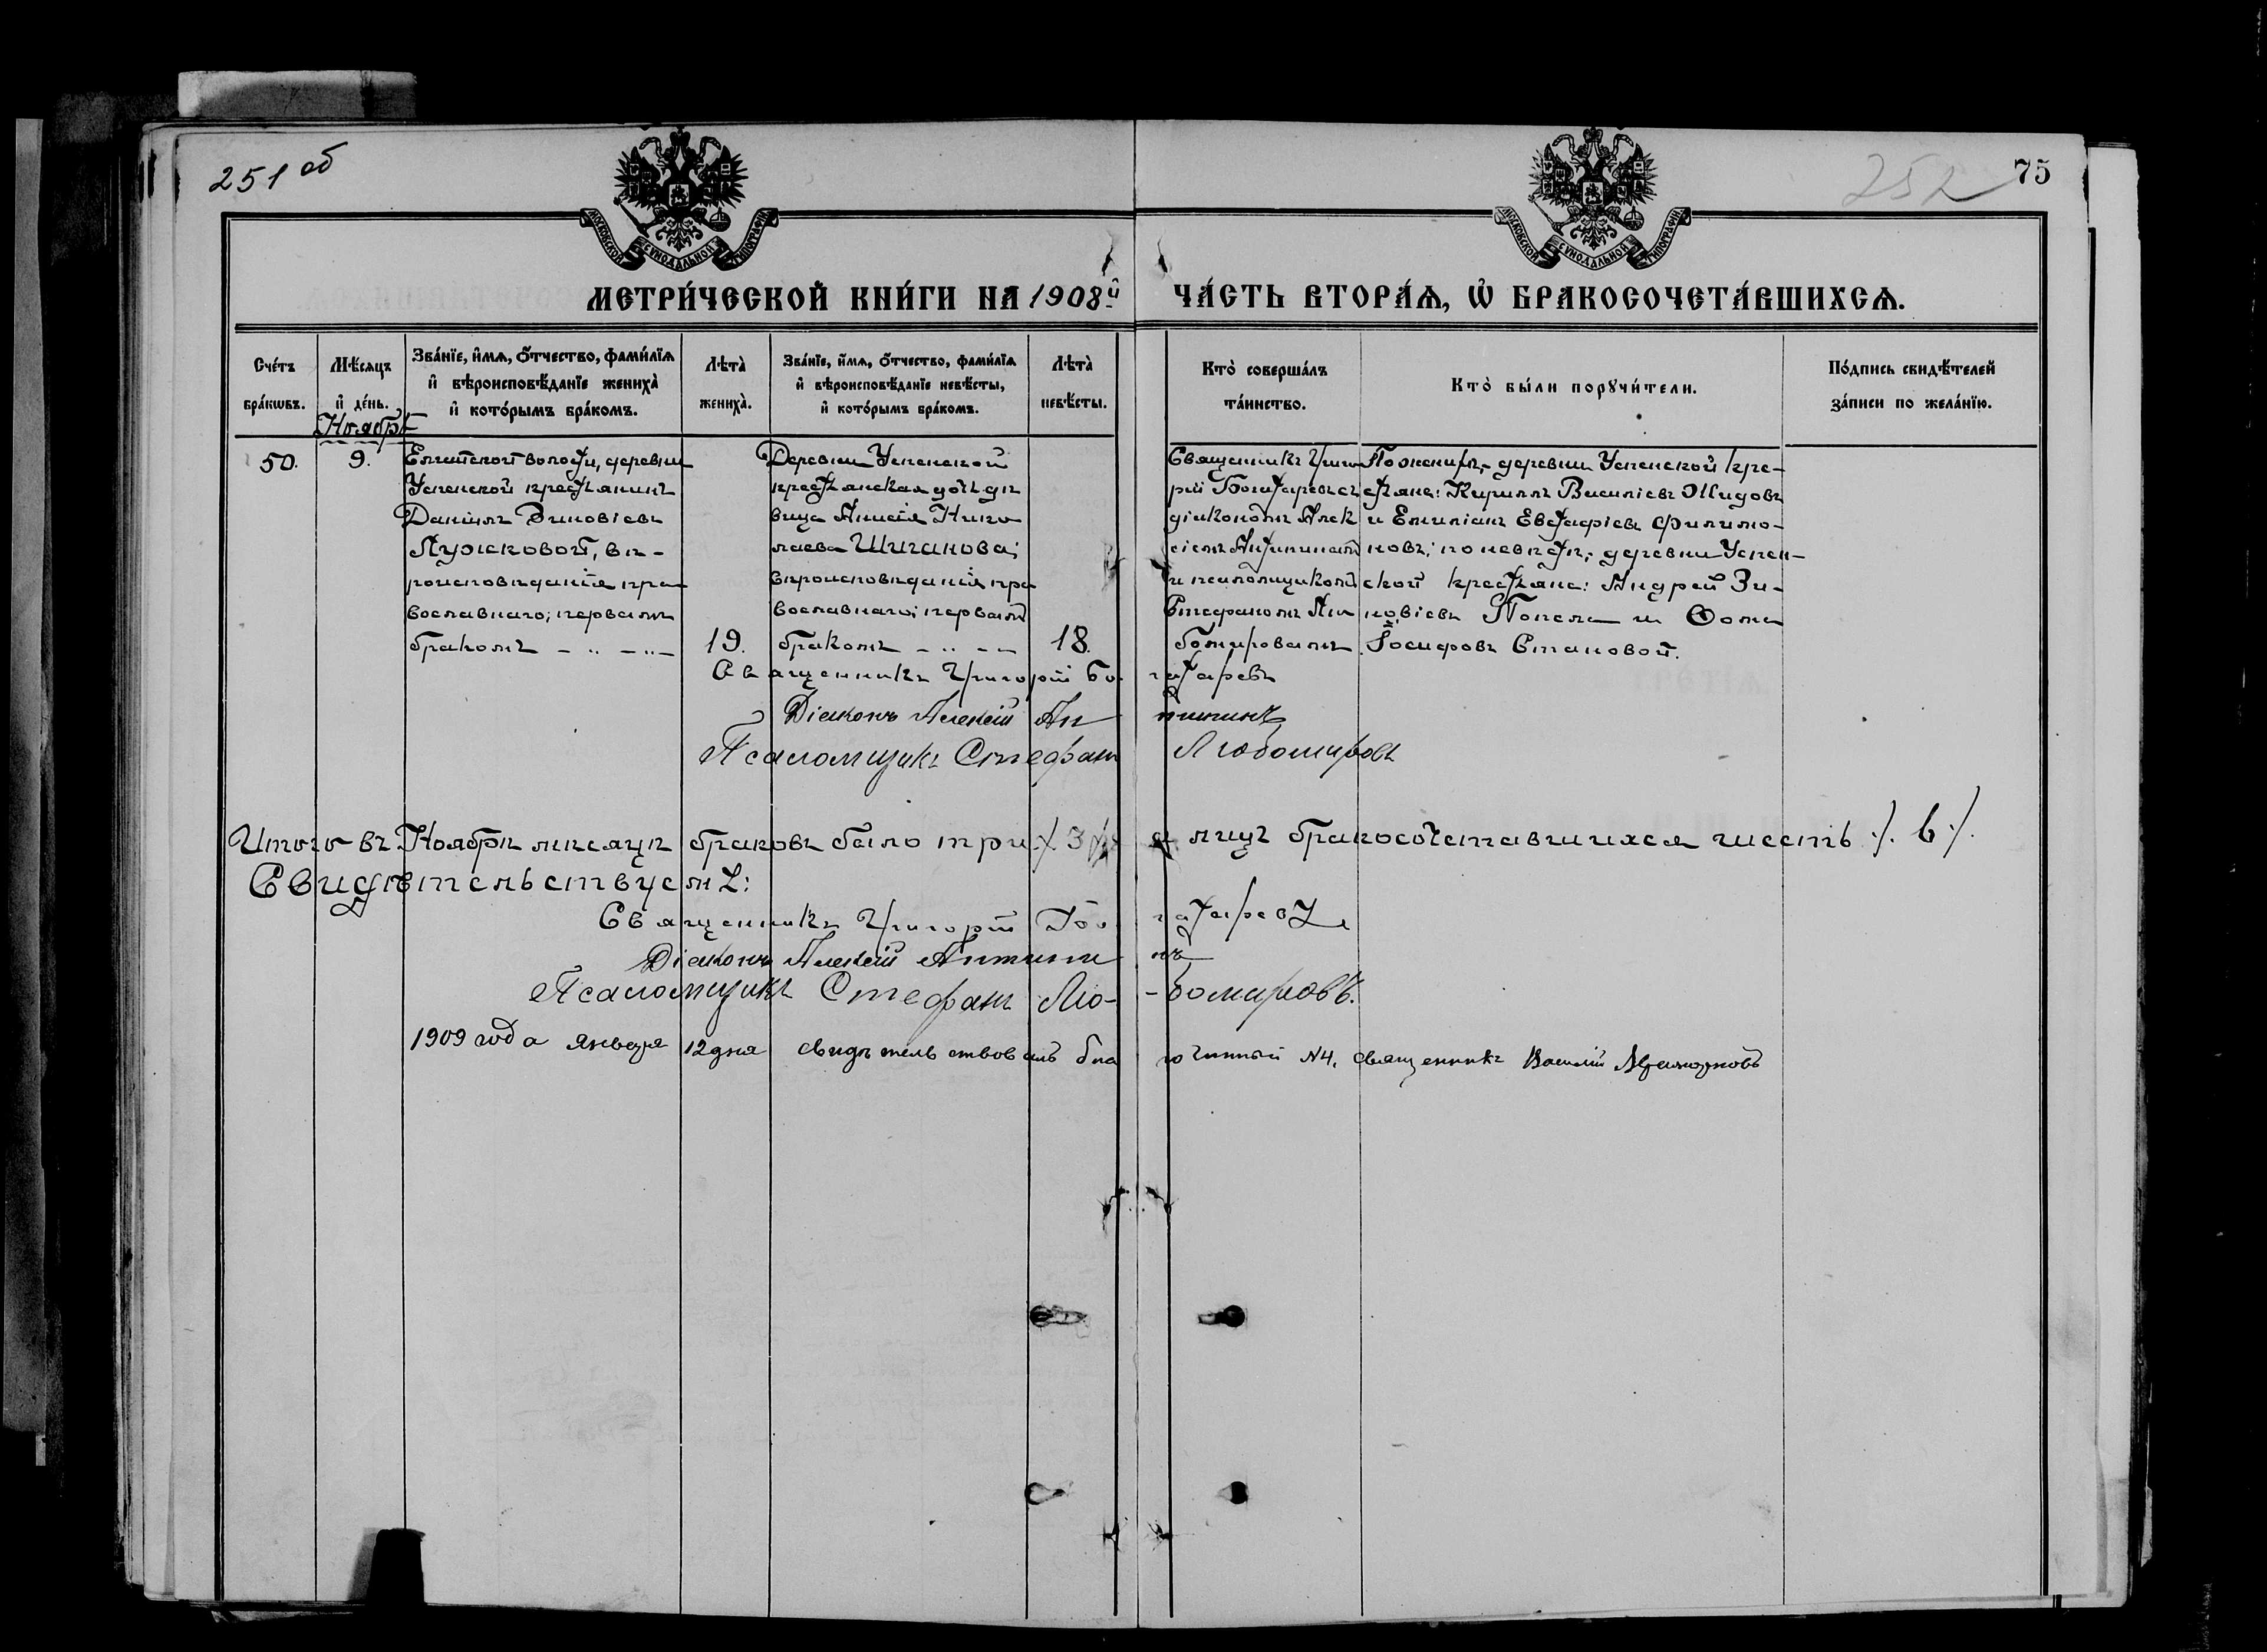 251 об
252
75
МОСКОВСКОЙ СѴНОДАЛЬНОЙ ТИПОГРАФІИ
МОСКОВСКОЙ СѴНОДАЛЬНОЙ ТИПОГРАФІИ
МЕТРИ́ЧЕСКОЙ КНИ́ГИ НА 1908й ЧА́СТЬ ВТОРА́Ѧ, Ѽ БРАКОСОЧЕТА́ВШИХСѦ.
Сче́тъ бра́кѡвъ.
Мѣ́сѧцъ и҆ де́нь.
Зва́нїе, и҆́мѧ, ѻ҆́тчество, фами́лїѧ и҆ вѣроисповѣ́данїе жениха̀ и҆ кото́рымъ бра́комъ.
Лѣта̀ жениха̀.
Зва́нїе, и҆́мѧ, ѻ҆́тчество, фами́лїѧ и҆ вѣроисповѣ́данїе невѣ́сты, и҆ кото́рымъ бра́комъ.
Лѣта̀ невѣ́сты.
Кто̀ соверша́лъ та́инство.
Кто̀ бы́ли порꙋчи́тели.
По́дпись свидѣ́телей за́писи по жела́нїю.
Ноябрь
50.
9.
волости, деревни
Успенской крестьянинъ
Даніилъ Зиновіевъ
Лужсковой, вѣ-
роисповѣданія пра-
вославнаго; первымъ
бракомъ – „ – „ –
19.
Деревни Успенской
крестьянская дочь дѣ
вица Анисія Нико
лаева Шиганова;
вѣроисповѣданія пра
вославнаго; первымъ
бракомъ – „ – –
18.
Священникъ Григо
рій Богатыревъ съ
діакономъ Алек
сіемъ Антипинымъ
и псаломщикомъ
Стефаномъ Лю
бомировымъ.
По женихѣ, деревни Успенской кре-
стьяне: Кириллъ Василіевъ Жидовъ
и Емиліанъ Евстафіевъ Филимо-
новъ; по невѣстѣ, деревни Успен-
ской крестьяне: Андрей Зи-
новіевъ Попелъ и Ѳома
Іосифовъ Становой.
Священникъ Григорій Богатыревъ
Діаконъ Алексій Антипинъ
Псаломщикъ Стефанъ Любомировъ
Итого въ Ноябрѣ мѣсяцѣ браковъ было три ./. 3 ./. а лицъ бракосочетавшихся шесть ./. 6 ./.
Свидѣтельствуемъ:
Священникъ Григорій Богатыревъ
Діаконъ Алексій Антипинъ
Псаломщикъ Стефанъ Лю- -бомировъ.
1909 года Января 12 дня свидѣтельствовалъ благочинный №4, священникъ Василій